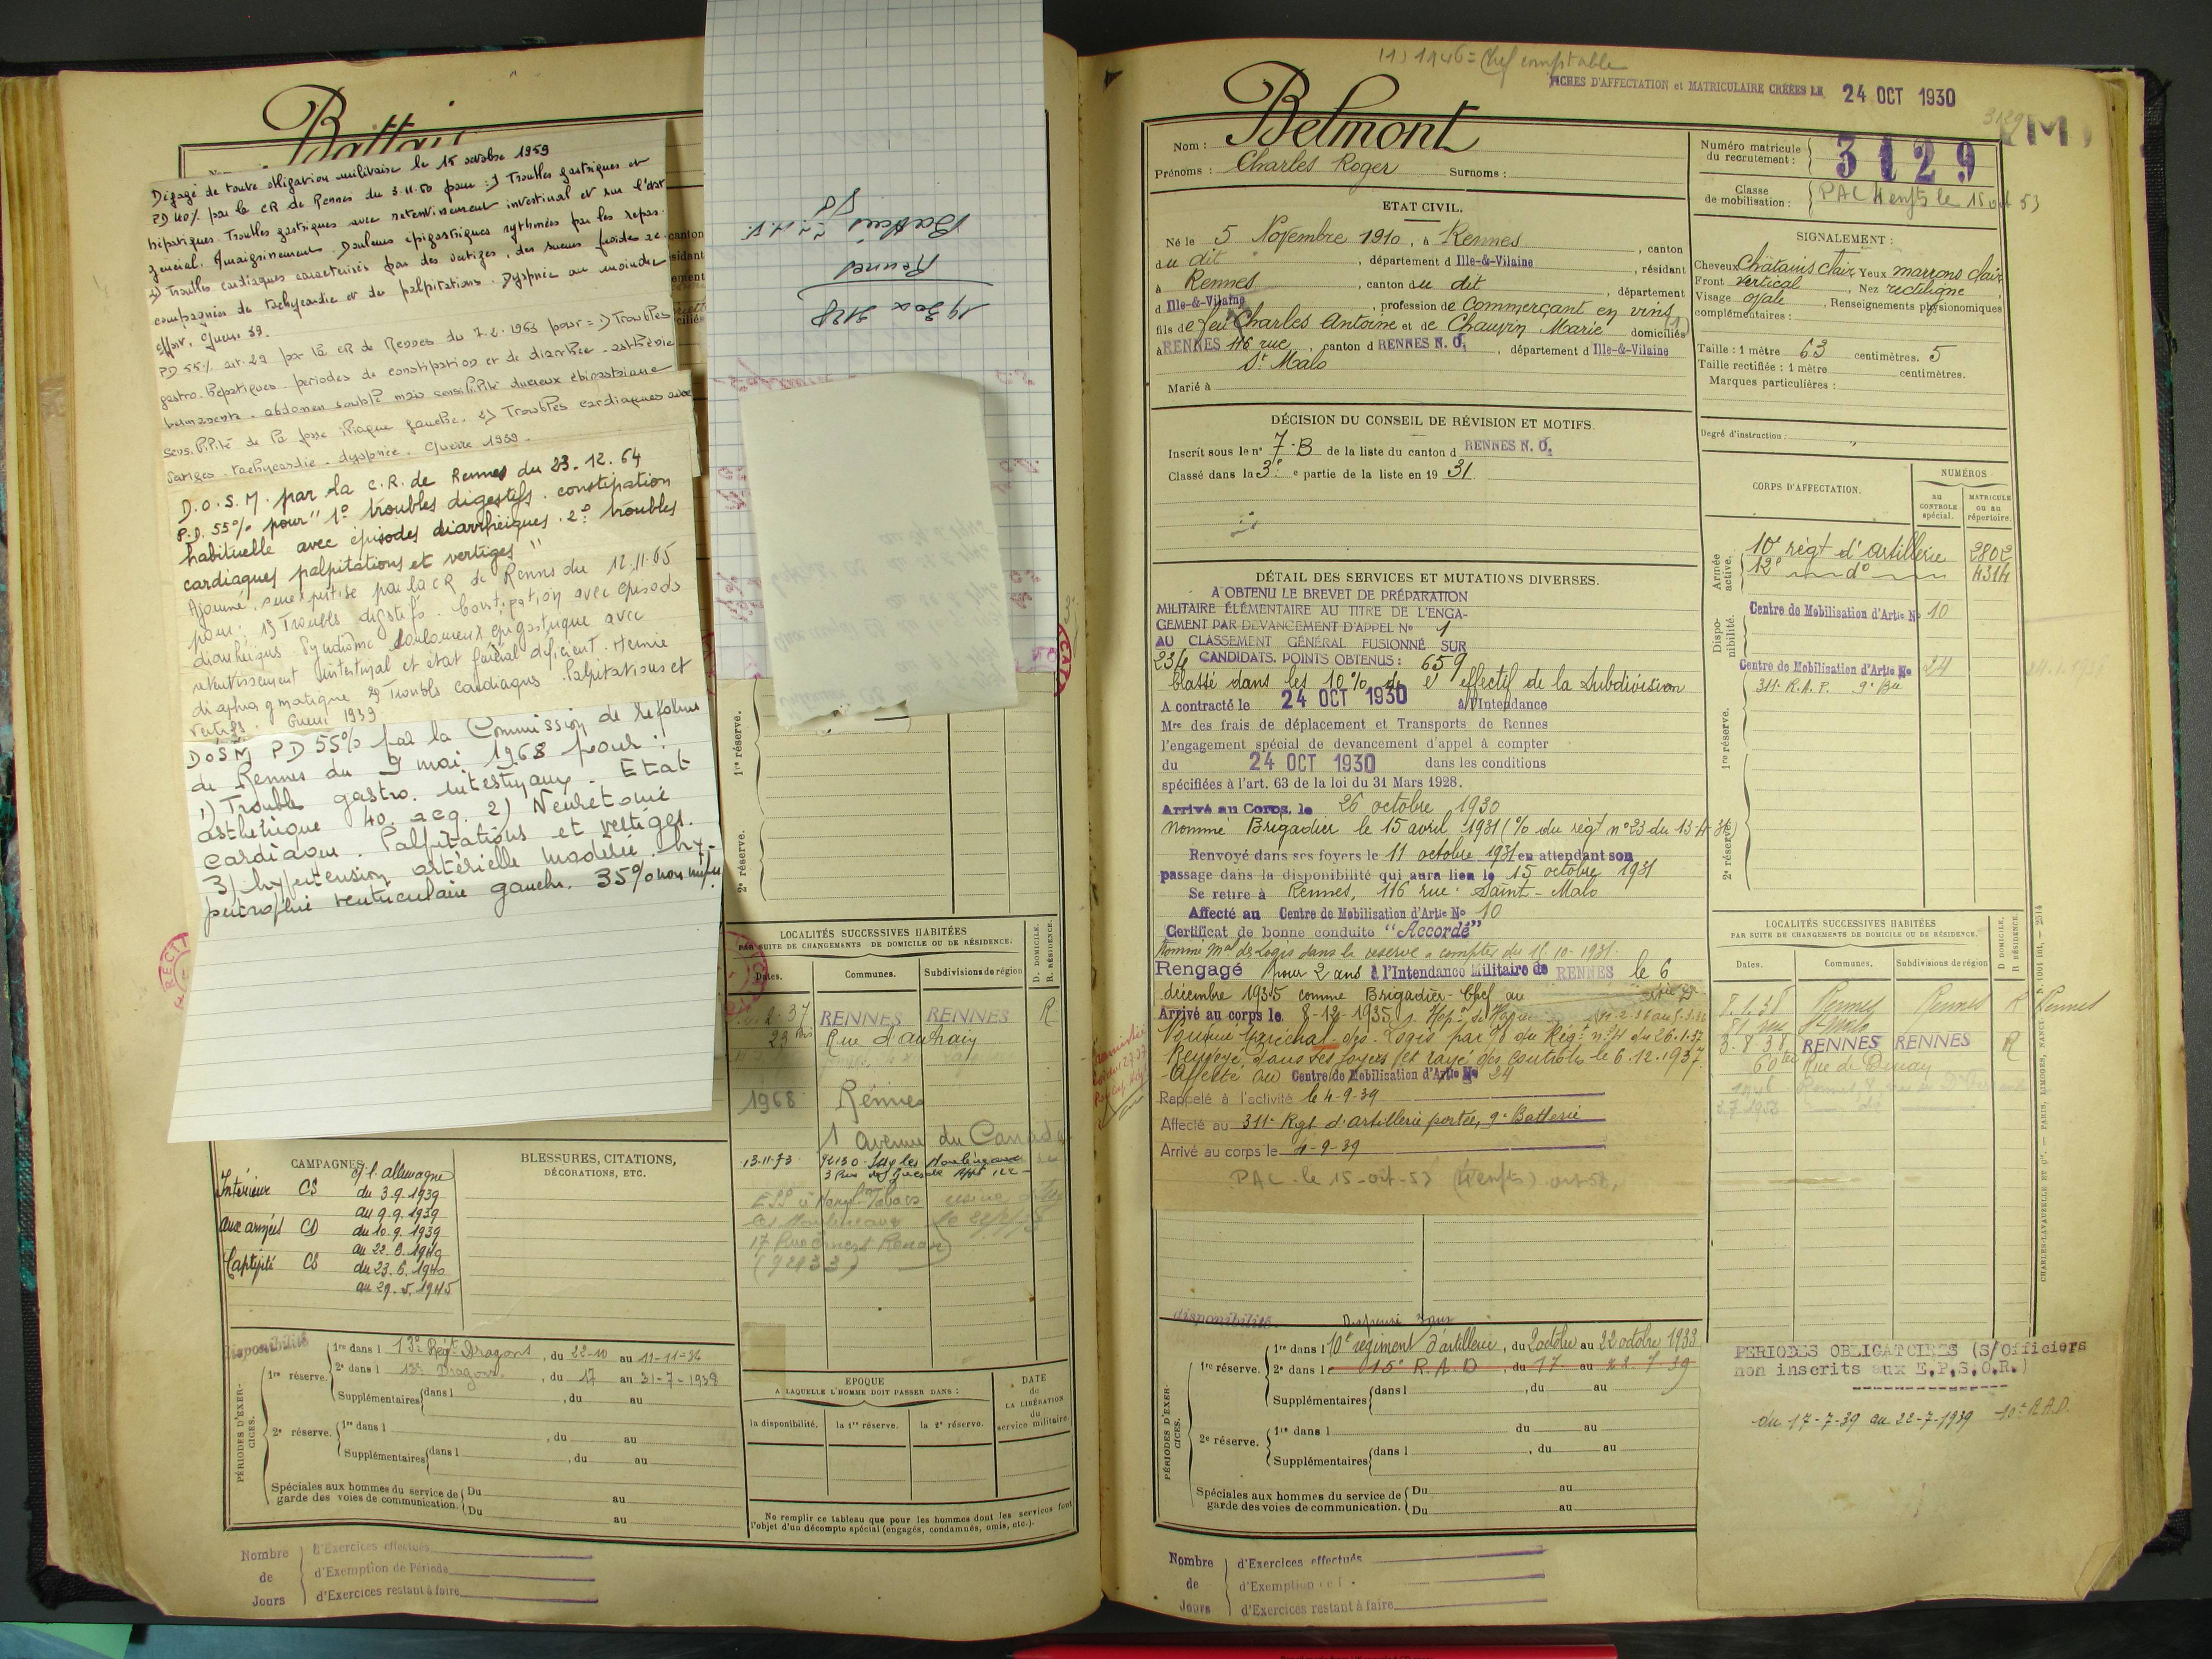 Battais
Dégagé de toute obligation militaire le 15 octobre 1959
PD 40% par la CR de Rennes du 3.11.50 pour : 1) Troubles gastriques et
hépatiques. Troubles gastriques avec retentissement intestinal et sur l'état
général. Amaigrissement. Douleurs épigastriques rythmées par les repas.
2) Troubles cardiaques caractérisés par des vertiges, des sueurs froides ac-
compagnés de tachycardie et de palpitations. Dyspnée au moindre
effort. Guerre 39.
PD 55% art. 29 par la CR de Rennes du 7.2.1963 pour = 1) Troubles
gastro-hépatiques périodes de constipation et de diarrhée - asthénie
permanente. abdomen souple mais sensibilité du creux épigastrique
sensibilité de la fosse iliaque gauche. 2) Troubles cardiaques avec
vertiges. tachycardie. dyspnée. Guerre 1939.
D.O.S.M. par la C.R. de Rennes du 23.12.64
P.D. 55% pour " 1° troubles digestifs. constipation
habituelle avec épisodes diarrhéiques. 2° troubles
cardiaques palpitations et vertiges "
Ajourné, surexpertise par la CR de Rennes du 12.11.65
pour : 1) Troubles digestifs. Constipation avec épisodes
diarrhéiques. Syndrome douloureux épigastrique avec
retentissement intestinal et état général déficient. Hernie
diaphragmatique 2) Troubles cardiaques. Palpitations et
vertiges. Guerre 1939
DOSM PD 55% par la Commission de Réforme
de Rennes du 9 mai 1968 pour :
1) Trouble gastro. intestinaux. Etat
asthénique 40. acq. 2) Neurotonie
cardiaque. Palpitations et vertiges.
3) hypertension artérielle modérée. hy-
pertrophie ventriculaire gauche. 35% non imput
1930 n 3128
Rennes
Battais
1re réserve.
2e réserve.
LOCALITÉS SUCCESSIVES HABITÉES
PAR SUITE DE CHANGEMENTS DE DOMICILE OU DE RÉSIDENCE.
D. DOMICILE.
R. RÉSIDENCE.
Dates. Communes. Subdivisions de région
2-37 RENNES RENNES R
23 bis Rue d'antrain
1968 Rennes
1 avenue du Canada
13-11-73 92130 - Issy les Moulineaux
17 Rue Ernest Renan
CAMPAGNES
c/ l'allemagne
Intérieur CS du 3.9.1939
au 9.9.1939
aux armées CD du 10.9.1939
au 22.6.1940
Captivité CS du 23.6.1940
au 29.5.1945
BLESSURES, CITATIONS,
DÉCORATIONS, ETC.
disponibilité
PÉRIODES D'EXERCICES.
1re réserve. 1re dans l 13e Régt Dragons, du 22-10 au 11-11-36
2e dans l 13e Dragons, du 17 au 31-7-1938
Supplémentaires dans l , du au
2e réserve. 1re dans l , du au
Supplémentaires dans l , du au
Spéciales aux hommes du service de garde des voies de communication. Du au
Du au
EPOQUE
A LAQUELLE L'HOMME DOIT PASSER DANS :
la disponibilité. la 1re réserve. la 2e réserve.
DATE
de
LA LIBÉRATION
du
service militaire.
Ne remplir ce tableau que pour les hommes dont les services font
l'objet d'un décompte spécial (engagés, condamnés, omis, etc.).
Nombre de Jours
d'Exercices effectués
d'Exemption de Période
d'Exercices restant à faire
(1) 1946 = Chef comptable
FICHES D'AFFECTATION et MATRICULAIRE CRÉÉES LE 24 OCT 1930
3129
Nom : Belmont
Prénoms : Charles Roger Surnoms :
Numéro matricule
du recrutement : 3129
Classe
de mobilisation : PAC 4 enfts le 15 oct 53
ETAT CIVIL.
Né le 5 Novembre 1910, à Rennes, canton
du dit, département d Ille-&-Vilaine, résidant
à Rennes, canton du dit, département
d Ille-&-Vilaine, profession de Commerçant en vins (1)
fils de feu Charles Antoine et de Chauvin Marie domiciliés
à RENNES 116 rue, canton d RENNES N. O., département d Ille-&-Vilaine
St Malo
Marié à
SIGNALEMENT :
Cheveux Châtains clair Yeux marrons clair
Front vertical, Nez rectiligne,
Visage ovale, Renseignements physionomiques
complémentaires :
Taille : 1 mètre 63 centimètres. 5
Taille rectifiée : 1 mètre centimètres.
Marques particulières :
Degré d'instruction :
DÉCISION DU CONSEIL DE RÉVISION ET MOTIFS.
Inscrit sous le n° 7-B de la liste du canton d RENNES N. O.
Classé dans la 3e partie de la liste en 19 31.
DÉTAIL DES SERVICES ET MUTATIONS DIVERSES.
A OBTENU LE BREVET DE PRÉPARATION
MILITAIRE ÉLÉMENTAIRE AU TITRE DE L'ENGA-
GEMENT PAR DEVANCEMENT D'APPEL No 1
AU CLASSEMENT GÉNÉRAL FUSIONNÉ SUR
234 CANDIDATS. POINTS OBTENUS : 659
Classé dans les 10% de l'effectif de la Subdivision
A contracté le 24 OCT 1930 à l'Intendance
Mre des frais de déplacement et Transports de Rennes
l'engagement spécial de devancement d'appel à compter
du 24 OCT 1930 dans les conditions
spécifiées à l'art. 63 de la loi du 31 Mars 1928.
Arrivé au Corps, le 26 octobre 1930
Nommé Brigadier le 15 avril 1931 (% du régt n° 23 du 13-4-31)
Renvoyé dans ses foyers le 11 octobre 1931 en attendant son
passage dans la disponibilité qui aura lieu le 15 octobre 1931
Se retire à Rennes, 116 rue Saint-Malo
Affecté au Centre de Mobilisation d'Artie No 10
Certificat de bonne conduite "Accordé"
Nommé Mal des Logis dans la réserve à compter du 15-10-1931.
Rengagé pour 2 ans à l'Intendance Militaire de RENNES le 6
décembre 1935 comme Brigadier-Chef au
Arrivé au corps le 8-12-1935
Nommé Maréchal-des-Logis par % du Régt n° 4 du 26.1.37
Renvoyé dans ses foyers et rayé des contrôles le 6.12.1937
Affecté au Centre de Mobilisation d'Artie No 24
Rappelé à l'activité le 4-9-39
Affecté au 311e Rgt d'artillerie portée, 9e Batterie
Arrivé au corps le 4-9-39
PAC le 15-oct-53 (4 enfts)
CORPS D'AFFECTATION.
NUMÉROS
au CONTROLE spécial.
MATRICULE ou au répertoire.
Armée active.
10e régt d'artillerie 2802
12e do 4314
Disponibilité.
Centre de Mobilisation d'Artie No 10
Centre de Mobilisation d'Artie No 24
311e R.A.P. 9e Bie
1re réserve.
2e réserve.
LOCALITÉS SUCCESSIVES HABITÉES
PAR SUITE DE CHANGEMENTS DE DOMICILE OU DE RÉSIDENCE.
D. DOMICILE.
R. RÉSIDENCE.
Dates. Communes. Subdivisions de région
8.1.38 Rennes Rennes R Rennes
81 rue St Malo
3.8.38 RENNES RENNES R
60 ter Rue de Dinan
CHARLES-LAVAUZELLE ET Cie. — PARIS, LIMOGES, NANCY
disponibilité. Dispensé
PÉRIODES D'EXERCICES.
1re réserve. 1re dans l 10e régiment d'artillerie, du 2 octobre au 22 octobre 1933
2e dans l 15e R.A.D, du 17 au 22 7 39
Supplémentaires dans l , du au
2e réserve. 1re dans l du au
Supplémentaires dans l , du au
Spéciales aux hommes du service de garde des voies de communication. Du au
Du au
PERIODES OBLIGATOIRES (S/Officiers
non inscrits aux E.P.S.O.R.)
du 17-7-39 au 22-7-1939 10e R.A.D.
Nombre de Jours
d'Exercices effectués
d'Exemption
d'Exercices restant à faire